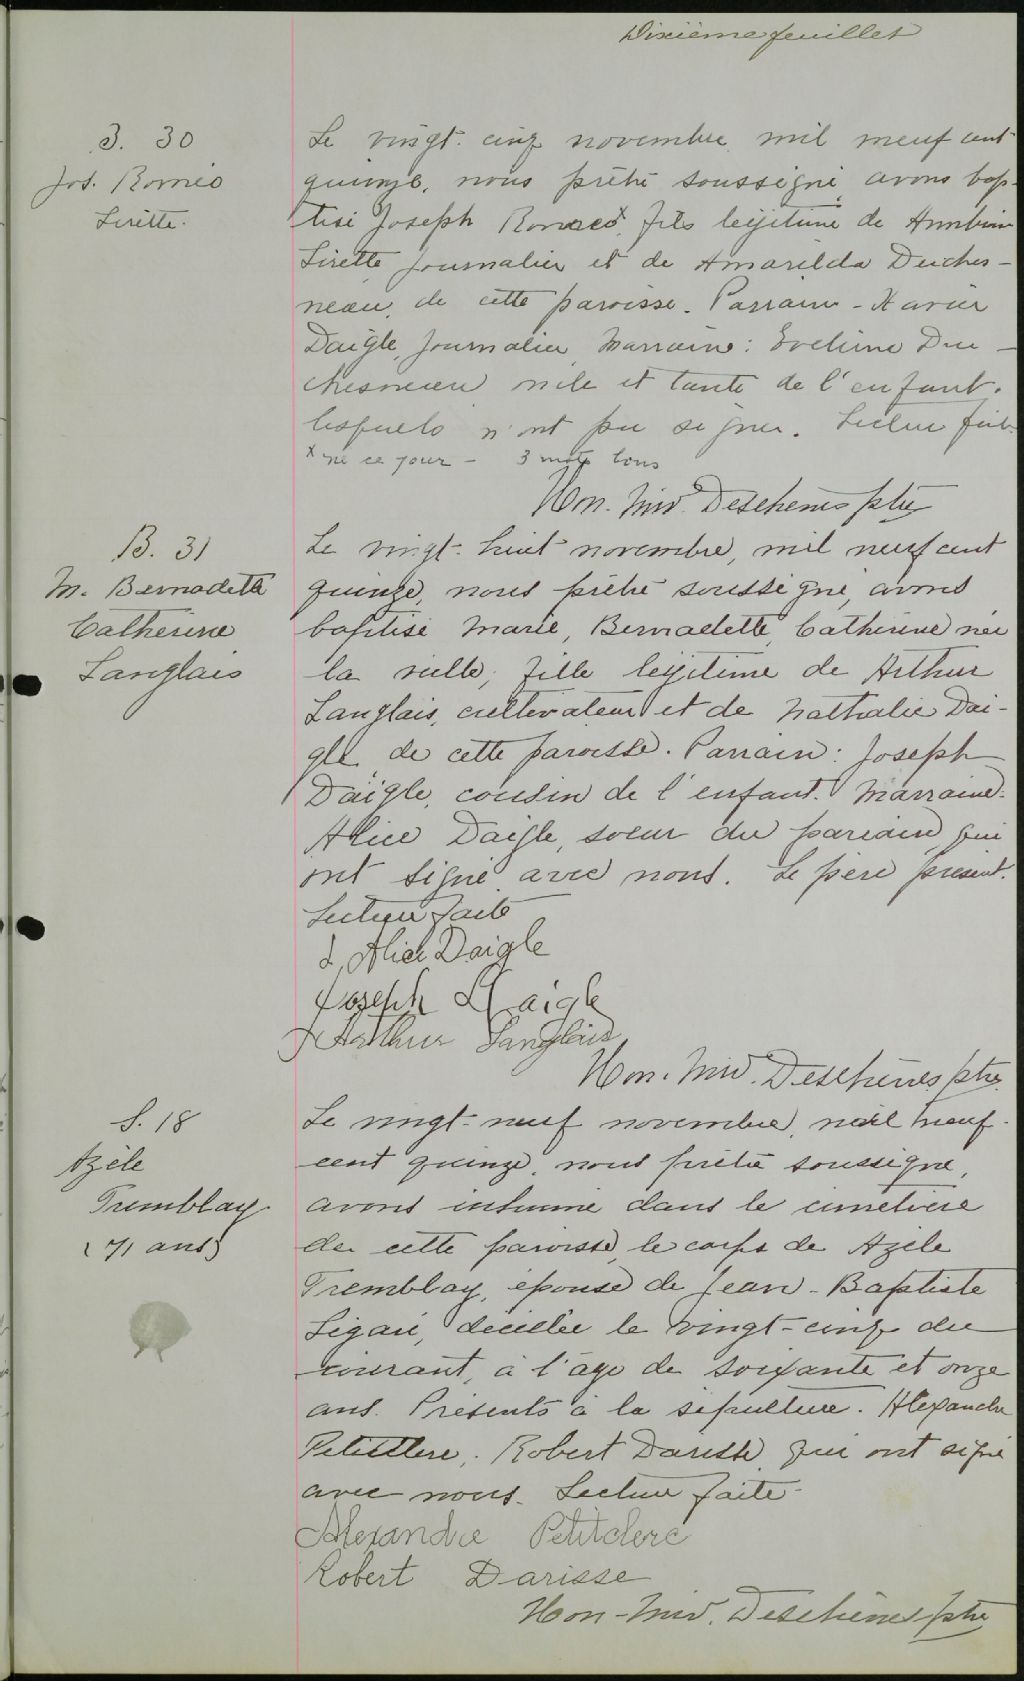 Dixième feuillet
B. 30
Jos. Roméo
Sirette.
Le vingt-cinq novembre mil neuf cent
quinze, nous prêtre soussigné avons bap-
tisé Joseph Romeo x, fils légitime de
Sirette journalier et de Amarilda Duches-
neau, de cette paroisse. Parrain - Xavier
Daigle, journalier, Marraine: Eveline Du-
chesneau oncle et tante de l'enfant.
lesquels n'ont pu signer. Lecture faite
x né ce jour - 3 mots bons
Hon. Miv. Deschènes ptre
B. 31
M. Bernadette
Catherine
Langlais
Le vingt-huit novembre, mil neuf cent
quinze, nous prêtre soussigné, avons
baptisé Marie, Bernadette, Catherine née
la veille, fille légitime de Arthur
Langlais, cultivateur et de Nathalie Dai-
gle, de cette paroisse. Parrain: Joseph
Daigle, cousin de l'enfant. Marraine:
Alice Daigle, soeur du parrain, qui
ont signé avec nous. Le père présent.
Lecture faite
Alice Daigle
Joseph Daigle
Arthur Langlais
Hon. Miv. Deschènes, ptre.
S. 18
Azèle
Tremblay
(71 ans)
Le vingt-neuf novembre, mil neuf-
cent quinze, nous prêtre soussigné,
avons inhumé dans le cimetière
de cette paroisse, le corps de Azèle
Tremblay, épouse de Jean-Baptiste
Ligaré, décédée le vingt-cinq du
courant, à l'âge de soixante et onze
ans. Présents à la sépulture. Alexandre
Petitclerc, Robert Darisse, qui ont signé
avec nous. Lecture faite-
Alexandre Petitclerc
Robert Darisse
Hon-Miv. Deschènes ptre